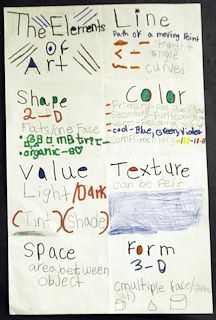 The Elements
Of
Art
Line
Path of a moving Point
angle
curved
Shape
2-D
Flats/one Face
organic-
Color
cool-Blue, Green, Violet
Value
Light/Dark
(Tint)(Shade)
Texture
can be felt
Space
area between
object
Form
3-D
(multiple face/sides